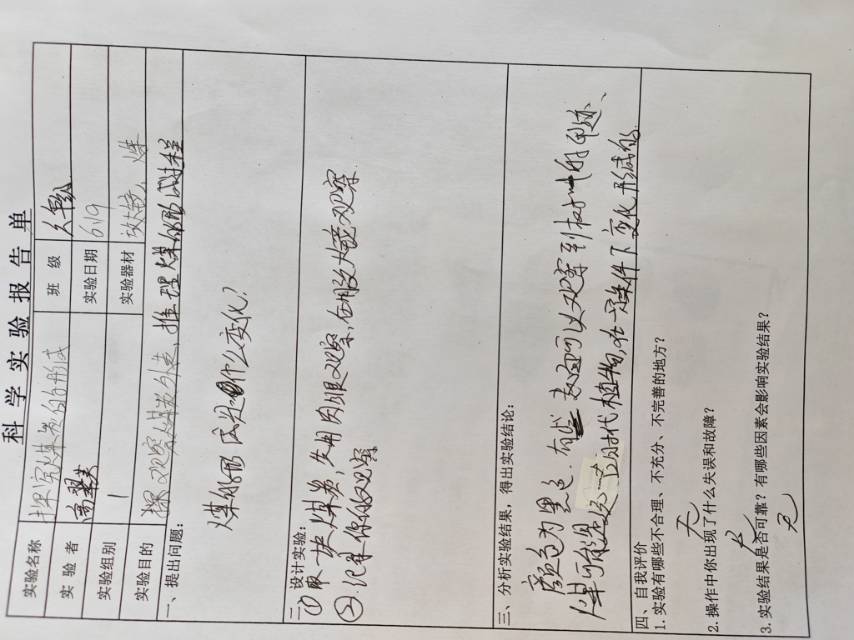 科学实验报告单
实验名称 探究煤炭的形成 班级
实验者 高翠英 实验日期 6.19
实验组别 1 实验器材 放大镜、煤
实验目的 观察煤炭外表、推理煤的形成过程
一、提出问题:
煤的形成是什么变化?
二、设计实验:
①取一块煤炭,先用肉眼观察,在用放大镜观察
②.记录你的观察
三、分析实验结果,得出实验结论:
颜色为黑色.有些表面可以观察到树叶的印迹、
煤可能是远古时代植物,在一定条件下变化形成的
四、自我评价
1.实验有哪些不合理、不充分、不完善的地方?
无
2.操作中你出现了什么失误和故障?
无
3.实验结果是否可靠?有哪些因素会影响实验结果?
无